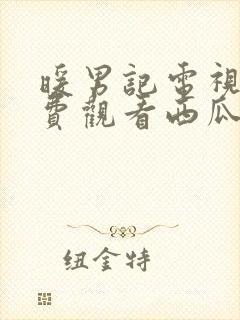 暖男記電視
費觀看西瓜
纽金特